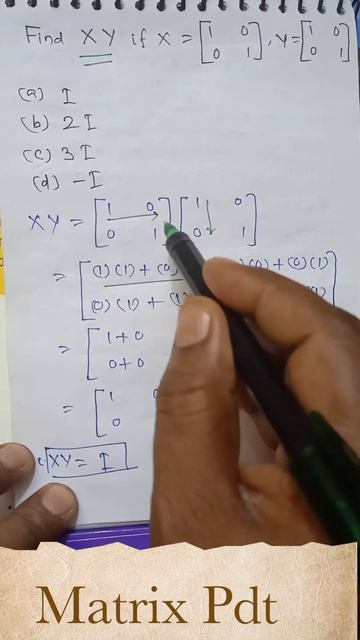 Find XY if X = [1 0 0 1], Y = [1 0 0 1]
(a) I
(b) 2I
(c) 3I
(d) -I
XY = [1 0 0 1] [1 0 0 1]
= [(1)(1) + (0) (0) + (0)(1)
(0)(1) +
= [1+0
0+0
= [1
0
XY = I
Matrix Pdt